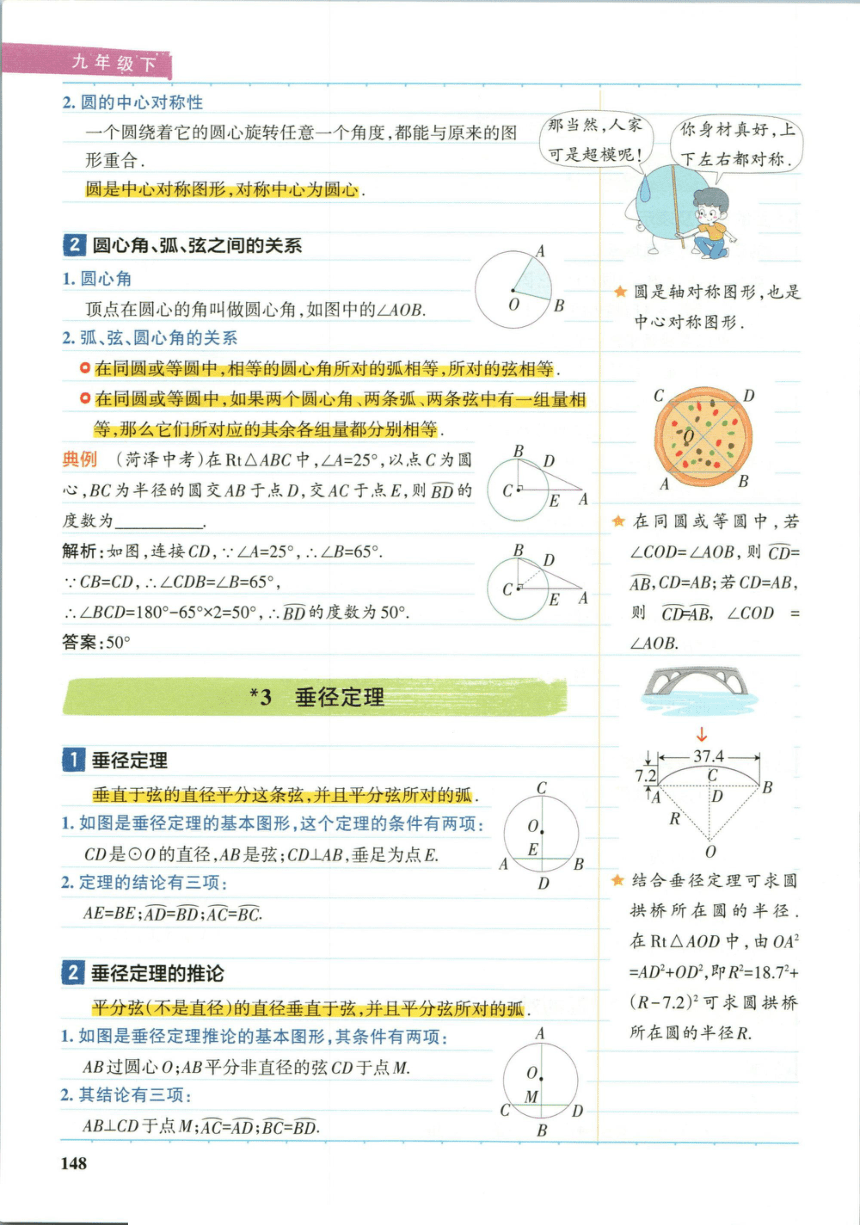 九年级下
2. 圆的中心对称性
一个圆绕着它的圆心旋转任意一个角度,都能与原来的图
形重合.
圆是中心对称图形,对称中心为圆心.
2 圆心角、弧、弦之间的关系
1. 圆心角
顶点在圆心的角叫做圆心角,如图中的∠AOB.
A
O
B
2. 弧、弦、圆心角的关系
在同圆或等圆中,相等的圆心角所对的弧相等,所对的弦相等.
在同圆或等圆中,如果两个圆心角、两条弧、两条弦中有一组量相
等,那么它们所对应的其余各组量都分别相等.
典例 (菏泽中考)在Rt△ABC中,∠A=25°,以点C为圆
心,BC为半径的圆交AB于点D,交AC于点E,则B͡D的
度数为________.
B
D
C
E
A
解析:如图,连接CD,∵∠A=25°,∴∠B=65°.
∵CB=CD,∴∠CDB=∠B=65°,
∴∠BCD=180°-65°×2=50°,∴B͡D的度数为50°.
答案:50°
B
D
C
E
A
*3 垂径定理
1 垂径定理
垂直于弦的直径平分这条弦,并且平分弦所对的弧.
1. 如图是垂径定理的基本图形,这个定理的条件有两项:
CD是⊙O的直径,AB是弦;CD⊥AB,垂足为点E.
2. 定理的结论有三项:
AE=BE;A͡D=B͡D;A͡C=B͡C.
C
O
E
A
B
D
2 垂径定理的推论
平分弦(不是直径)的直径垂直于弦,并且平分弦所对的弧.
1. 如图是垂径定理推论的基本图形,其条件有两项:
AB过圆心O;AB平分非直径的弦CD于点M.
2. 其结论有三项:
AB⊥CD于点M;A͡C=A͡D;B͡C=B͡D.
A
O
M
C
D
B
148
那当然,人家
可是超模呢!
你身材真好,上
下左右都对称.
★ 圆是轴对称图形,也是
中心对称图形.
C
D
O
A
B
★ 在同圆或等圆中,若
∠COD=∠AOB,则C͡D=
A͡B,CD=AB;若CD=AB,
则 C͡D=A͡B, ∠COD =
∠AOB.
37.4
7.2
C
A
D
B
R
O
★ 结合垂径定理可求圆
拱桥所在圆的半径.
在Rt△AOD中,由OA²
=AD²+OD²,即R²=18.7²+
(R-7.2)²可求圆拱桥
所在圆的半径R.